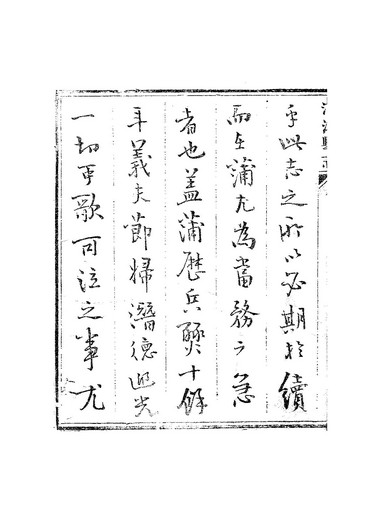 乎此志之所以必期於續
而在蒲尤為當務之急
者也蓋蒲歷兵燹十餘
年義夫節婦潛德
一切可歌可泣之事尤